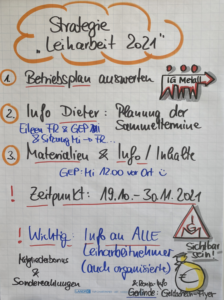 Strategie
„Leiharbeit 2021“
1 Betriebsplan auswerten
IG Metall
2. Info Dieter: Planung der
Sammeltermine
Eileen FR & GEP
& Sitzung Mi → FR
3. Materialien & Info / Inhalte
GEP: Mi 12.00 vor Ort
! Zeitpunkt: 19.10. - 30.11.2021
! Wichtig Info an ALLE
Leiharbeitnehmer
(auch organisierte)
Mitgliederbonus
&
Sonderzahlungen
Sichtbar
sein!
Gerlinde: Geldschein-Flyer